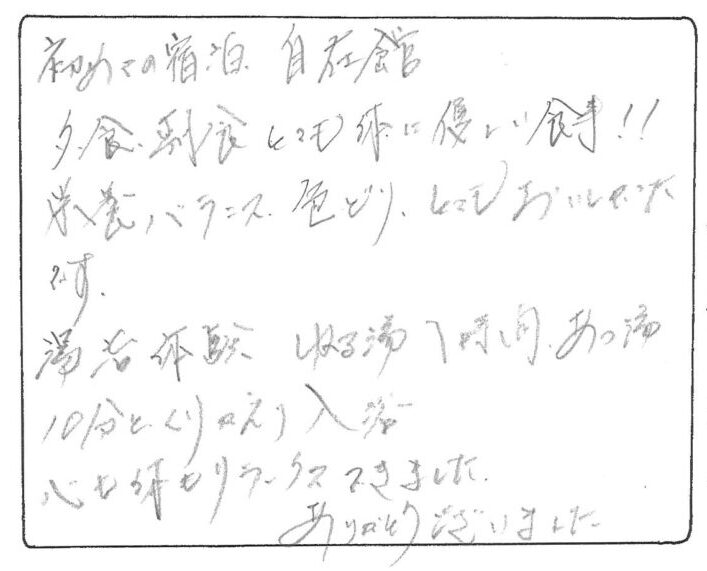 初めての宿泊 自在館
夕食、朝食とても体に優しい食事!!
栄養バランス、色どり、とてもおいしかった
です。
湯治体験 ぬる湯1時間、あつ湯
10分と、くりかえり入浴
心も体もリラックスできました。
ありがとうございました